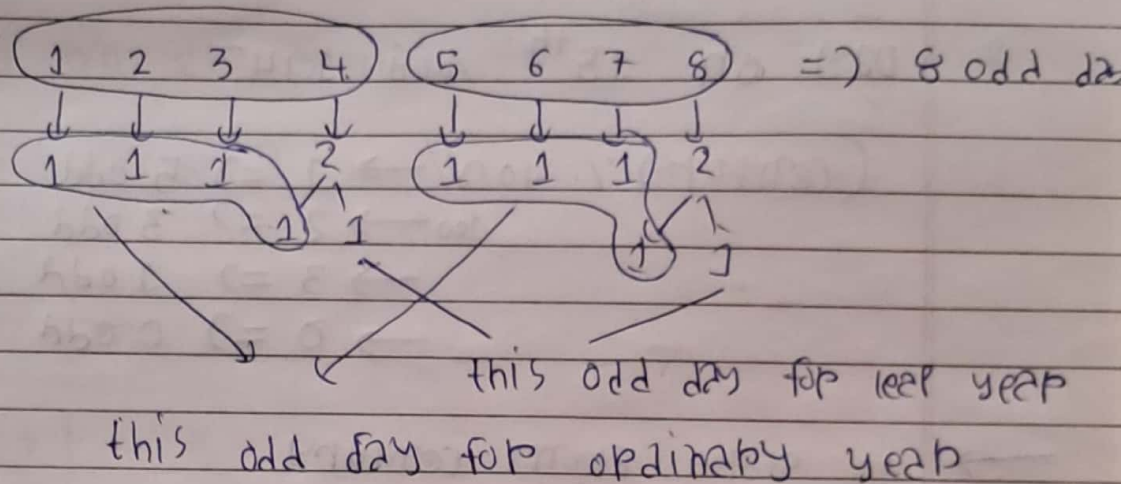 1 2 3 4 5 6 7 8 => 8 odd da
1 1 1 2 1 1 1 2
1 1 1 1
this odd day for leap year
this odd day for ordinary year